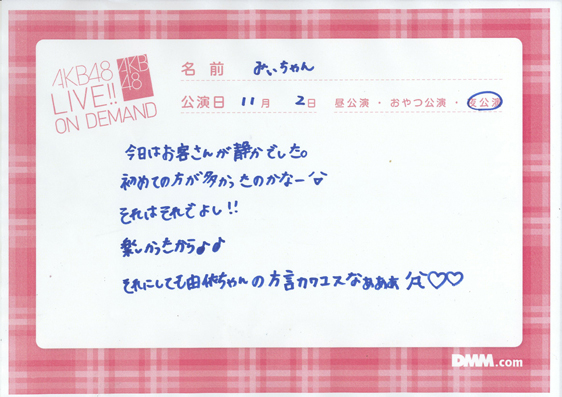 AKB48
LIVE!!
ON DEMAND
AKB
48
名前 みぃちゃん
公演日 11月 2日 昼公演・おやつ公演・夜公演
今日はお客さんが静かでした。
初めての方が多かったのかなー
それはそれでよし!!
楽しかったから♪♪
それにしても由依ちゃんの方言カワユスなぁぁぁ ♡♡
DMM.com